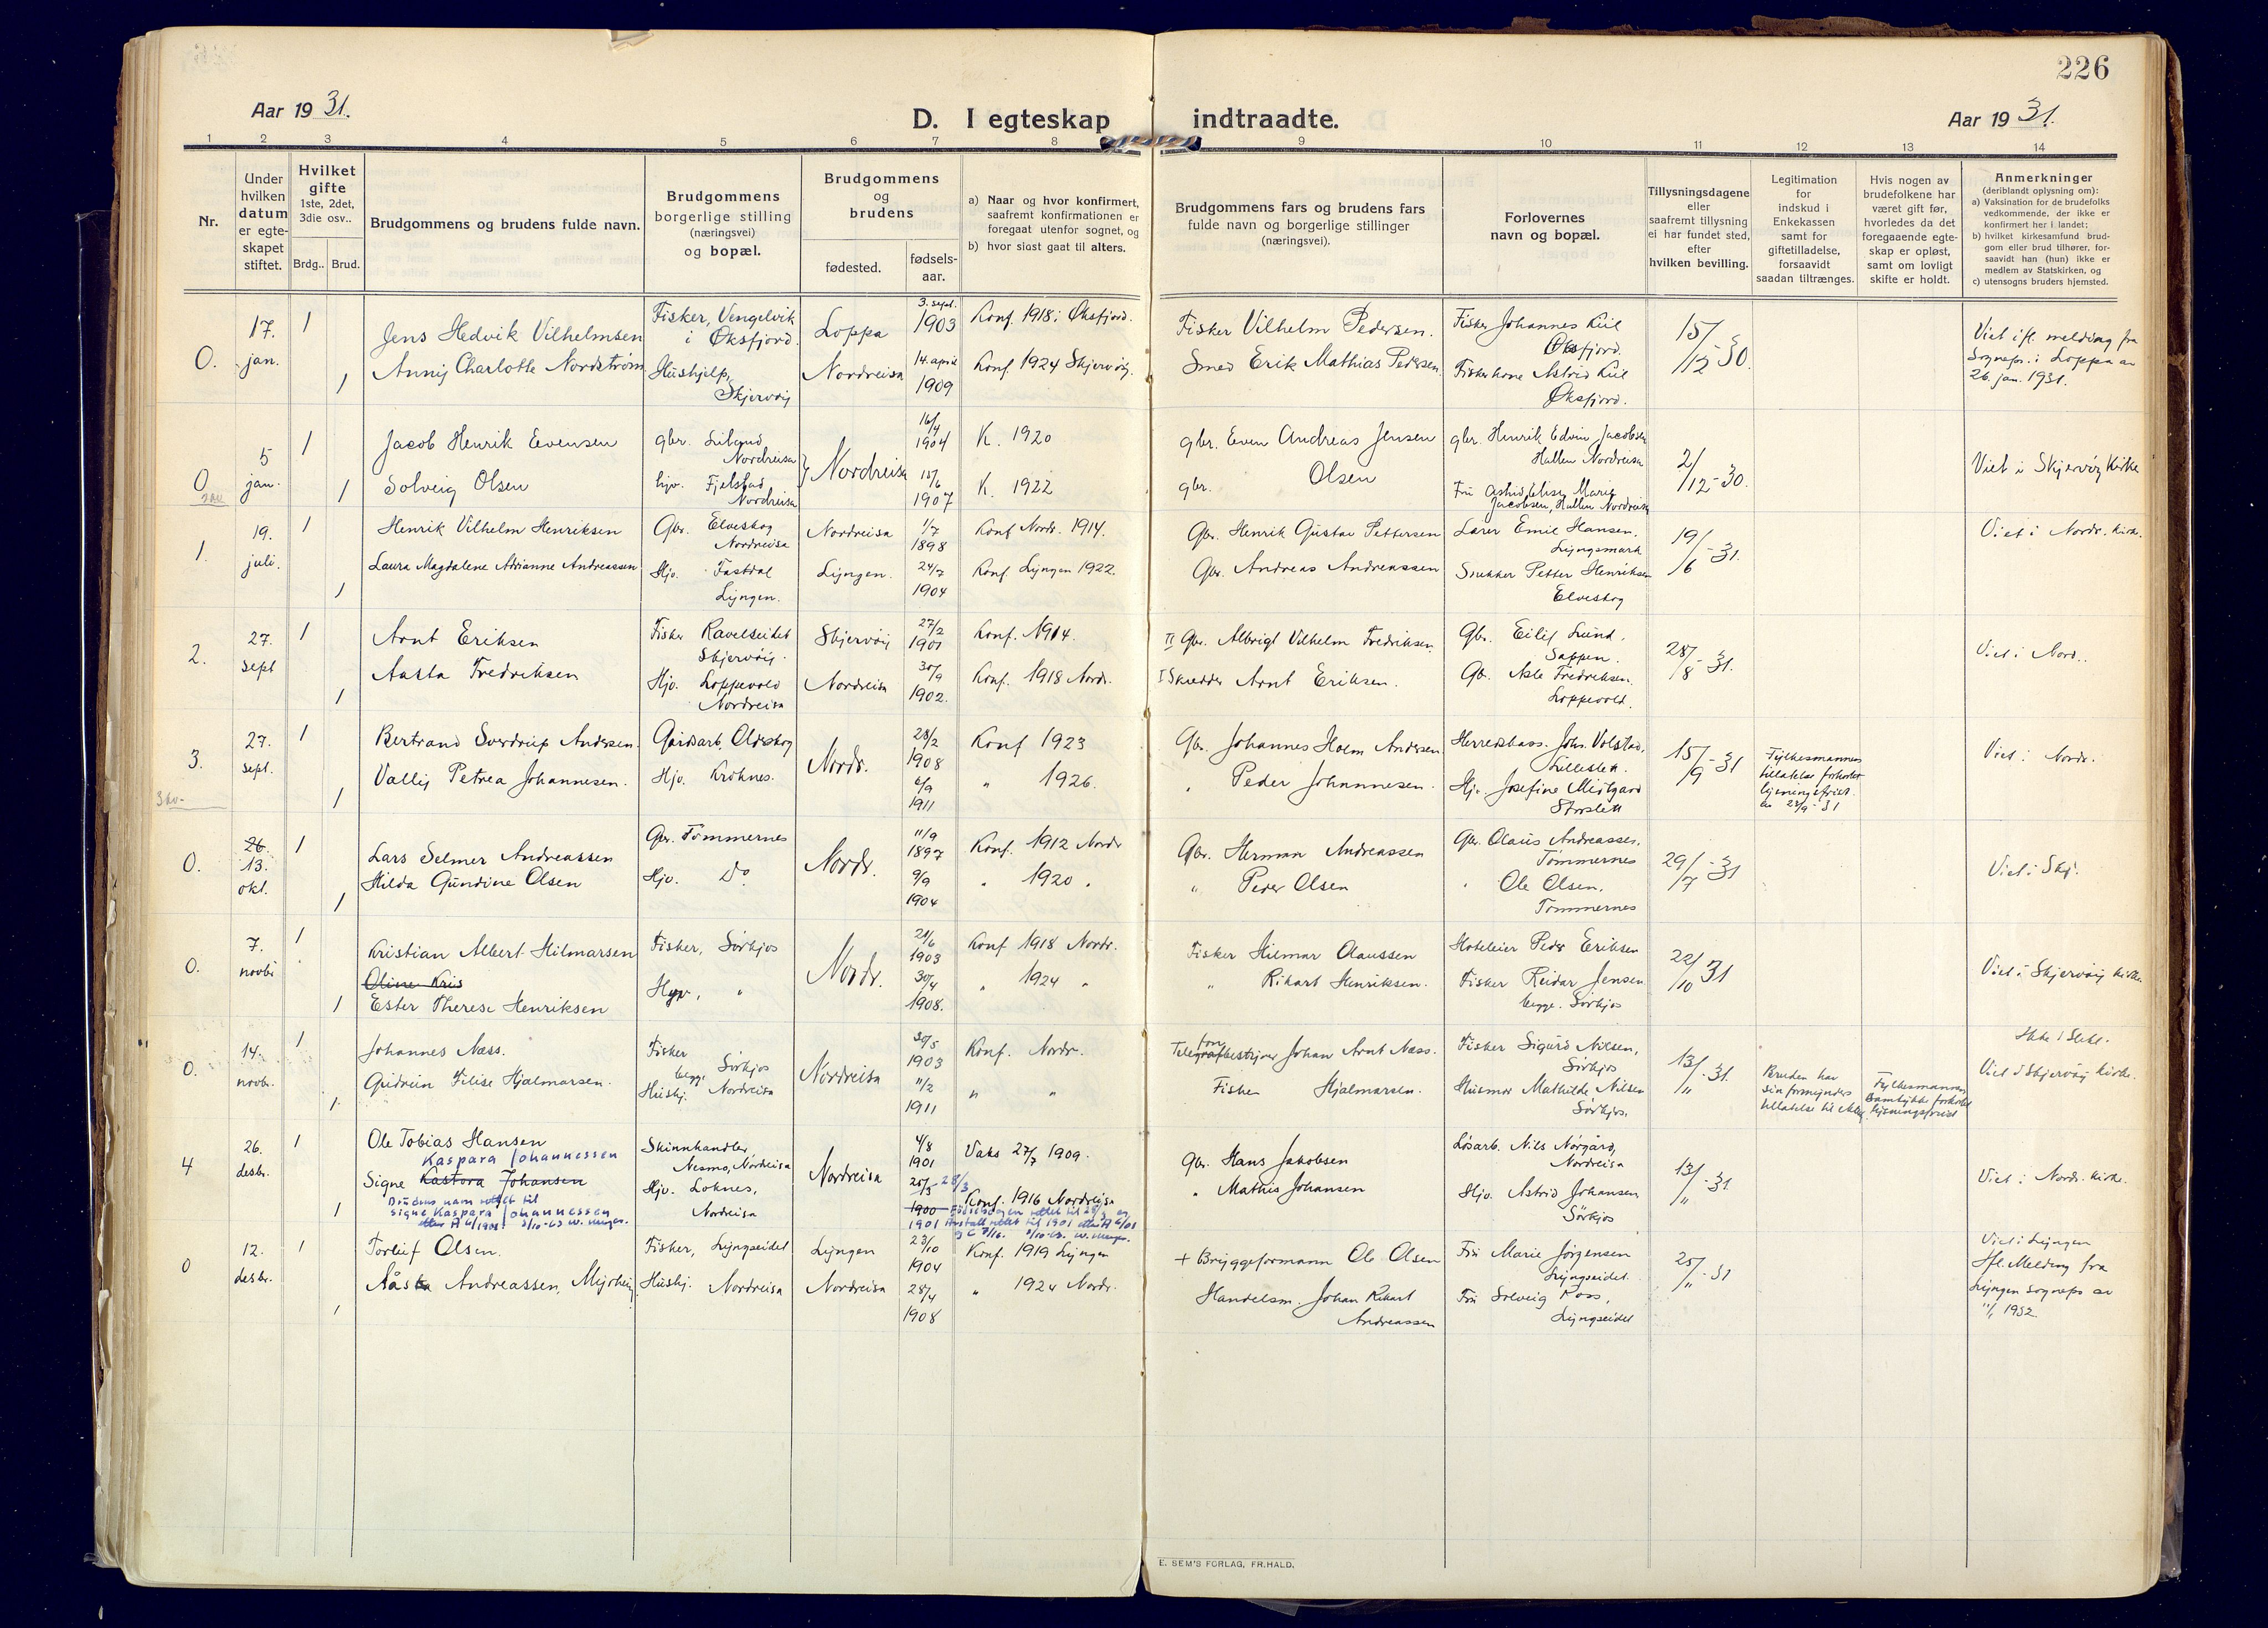 226
Aar 1931.
D. I egteskap indtraadte.
Aar 1931.
1 2 3 4 5 6 7 8 9 10 11 12 13 14
Nr.
Under
hvilken
datum
er egte-
skapet
stiftet.
Hvilket
gifte
1ste, 2det,
3die osv..
Brdg.. Brud.
Brudgommens og brudens fulde navn.
Brudgommens
borgerlige stilling
(næringsvei)
og bopæl.
Brudgommens
og
brudens
fødested.
fødsels-
aar.
a) Naar og hvor konfirmert,
saafremt konfirmationen er
foregaat utenfor sognet, og
b) hvor sidst gaat til alters.
Brudgommens fars og brudens fars
fulde navn og borgerlige stillinger
(næringsvei).
Forlovernes
navn og bopæl.
Tillysningsdagene
eller
saafremt tillysning
ei har fundet sted,
efter
hvilken bevilling.
Legitimation
for
indskud i
Enkekassen
samt for
giftetilladelse,
forsaavidt
saadan tiltrænges.
Hvis nogen av
brudefolkene har
været gift før,
hvorledes da det
foregaaende egte-
skap er opløst,
samt om lovligt
skifte er holdt.
Anmerkninger
(deriblandt oplysning om):
a) Vaksination for de brudefolks
vedkommende, der ikke er
konfirmert her i landet;
b) hvilket kirkesamfund brud-
gom eller brud tilhører, for-
saavidt han (hun) ikke er
medlem av Statskirken, og
c) utensogns bruders hjemsted.
0.
17.
jan.
1
1
Jens Hedvik Vilhelmsen
Anny Charlotte Nordstrøm
Fisker, Vengelvik
i Øksfjord.
Hushjelp,
Skjervøy
Loppa
Nordreisa
3. sept.
1903
14. april
1909
Konf. 1918 i Øksfjord.
Konf. 1924 Skjervøy.
Fisker Vilhelm Pedersen.
Smed Erik Mathias Pedersen
Fisker Johannes Kiil
Øksfjord.
Fiskerkone Astrid Kiil
Øksfjord.
15/12-30.
Viet ifl. melding fra
Sognepr. i Loppa av
26. jan. 1931.
0
5
jan.
1
1
Jacob Henrik Evensen
Solveig Olsen
gbr.
Nordreisa
hjv. Fjelstad
Nordreisa
Nordreisa
16/4
1904
15/6
1907
K. 1920
K. 1922
gbr. Even Andreas Jensen
gbr. Olsen
gbr. Henrik Edvin Jacobsen
Hallen Nordreisa
Fru Marie
Jacobsen, Hallen Nordreisa
2/12-30.
Viet i Skjervøy Kirke
1.
19.
juli.
1
1
Henrik Vilhelm Henriksen
Laura Magdalene Adrianne Andreassen
Gbr. Elveskog
Nordreisa
Hjv. Fastdal
Lyngen.
Nordreisa
Lyngen.
1/7
1898
24/7
1904
Konf Nordr. 1914.
Konf Lyngen 1922.
Gbr. Henrik Gustav Pettersen
Gbr. Andreas Andreassen
Lærer Emil Hansen,
Lyngsmark
Snekker Petter Henriksen
Elveskog
19/6-31.
Viet i Nordr. kirke.
2.
27.
sept
1
1
Arnt Eriksen
Aasta Fredriksen
Fisker Ravelseidet
Skjervøy.
Hjv. Loppevold
Nordreisa
Skjervøy
Nordreisa
27/2
30/9
1902.
Konf. 1914.
Konf. 1918 Nordr.
II Gbr. Albrigt Vilhelm Fredriksen.
I Skredder Arnt Eriksen.
Gbr. Eilif Lund.
Sappen.
Gbr. Asle Fredriksen.
Loppevold.
28/8-31.
Viet i Nord..
3.
27.
sept.
1
1
Bertrand Sverdrup Andersen.
Vally Petrea Johannesen.
Gårdsarb. Oldeskog
Hjv. Kroknes.
Nordr.
28/2
1908
6/9
1911
Konf 1923
" 1926.
Gbr. Johannes Holm Andersen.
" Peder Johannesen.
Herredskass. Johs. Volstad,
Lilleslett.
Hjv. Josefine Midtgard
Storslett
15/9-31
Fylkesmannens
tillatelse forkortet
lysningsfrist
av 23/9-31
Viet i Nordr.
0.
26.
13.
okt.
1
1
Lars Selmer Andreassen
Hilda Gundine Olsen
Gbr. Tømmernes
Hjv. Do
Nordr.
11/9
1897
9/9
1904
Konf. 1912 Nordr
" 1920 "
Gbr. Herman Andreassen
" Peder Olsen
Gbr. Olaus Andreassen,
Tømmernes
" Ole Olsen,
Tømmernes
29/7-31
Viet i Skj.
0.
7.
novbr
1
1
Kristian Albert Hilmarsen
Oline Kris
Ester Therese Henriksen
Fisker, Sørkjos
Hjv, "
Nordr.
21/6
1903
30/4
1908.
Konf 1918 Nordr.
" 1924 "
Fisker Hilmar Olaussen
" Rikart Henriksen.
Hoteleier Peder Eriksen
Fisker Reidar Jensen
begge. Sørkjos
22/10 31
Viet i Skjervøy kirke.
0.
14.
novbr.
1
1.
Johannes Næss.
Gudrun Filise Hjalmarsen.
Fisker
begge Sørkjos
Hushj. Nordreisa
Nordreisa
30/5
1903
11/2
1911
Konf. Nordr.
" "
Telegrafbestyrer Johan Arnt Næss.
fon
Fisker Hjalmarsen.
Fisker Sigurd Nilsen,
Sørkjos
Husmor Mathilde Nilsen
Sørkjos.
13/11-31.
Bruden har
sin formynders
tillatelse til
Fylkesmannens
samtykke forkortet
lysningsfrist
Viet i Skjervøy kirke.
4
26.
desbr.
1
1
Ole Tobias Hansen
Kaspara Johannessen
Signe Kastora Johansen
Brudens navn rettet til
Signe Kaspara Johannessen
etter A 6/1901
Skinnhandler,
Nesmo, Nordreisa
Hjv. Loknes,
Nordreisa
Nordreisa
4/8
1901
28/3
1900
1901
Vaks 27/7 1909.
Konf. 1916 Nordreisa
Fødselsdagen rettet til 28/3 og
Årstall rettet til 1901 etter A 6/01
Gbr. Hans Jakobsen
" Mathis Johansen
Løsarb. Nils Nørgård,
Nordreisa
Hjv. Astrid Johansen
Sørkjos
13/11-31.
Viet i Nordr. kirke.
0
12.
desbr.
1
1
Torleif Olsen.
Åsta Andreassen,
Fisker, Lyngseidet
Hushj. Nordreisa
Lyngen
Nordreisa
23/10
1904
28/4
1908
Konf. 1919 Lyngen
" 1924 Nordr.
+ Bryggeformann Ole Olsen
Handelsm. Johan Rikart
Andreassen
Fru Marie Jørgensen
Lyngseidet.
Fru Solveig Ross,
Lyngseidet
25/11-31
Viet i Lyngen
Ifl. Melding fra
Lyngen sognepr av
1932
E. SEM'S FORLAG, FR.HALD.